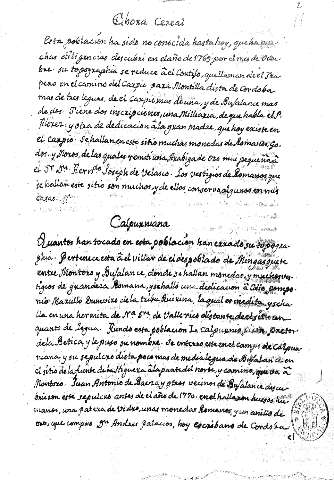 2
Ebora Cereal
Esta población ha sido no conocida hasta hoy, que ha pue
chas diligencias descubri en el año de 1765 por el mes de
bre. su topographia se reduce à el Cortijo, que llaman de el
pero en el camino del Carpio para Montilla dista de Cordoba
mas de tres leguas, de el Carpio mas de una, y de Bujalance mas
de dos. Tiene dos inscripciones, una Milliaria, de que habla el P.
Florez, y otra de dedicacion à la gran madre, que hoy existe en
el Carpio. Se hallan en este sitio muchas monedas de Romanos, Go-
dos, y Moros, de las quales remiti una Arabiga de oro muy pequeña à
el Sr. Dn. Joseph de Velasco. Los vestigios de Romanos que
se hallan este sitio son muchos, y de ellos conservo algunos en mi
casa.
Calpurniana
Quantos han tocado en esta población han errado su topogra-
phia. Pertenece esta à el villar de el despoblado de
entre Montoro y Bujalance, donde se hallan monedas, y muchos ves-
tigios de grandeza Romana, y se halló una dedicacion à
nio Marullo Duumvire de la tribu Quirina, la qual es inedita y se ha-
lla en una hermita de Na. Sa. de Valle rico distante de el sitio un
quarto de legua. Fundó esta población L. Calpurnio, pretor
de la Betica, y le puso su nombre. Se enterró este en el campo de Calpur
niana, y su sepulcro dista poco mas de media legua de Bujalance en
el sitio de la fuente de la Higuera à la parte del norte, y camino, que va à
Montoro. Juan Antonio de Baena, y otros vecinos de Bujalance descu-
brieron este sepulcro antes de el año de 1770. en el hallaron huesos hu-
manos, una patera de Vidro, unas monedas Romanas, y un anillo de
oro, que compró Dn. Andres Palacios, hoy escribano de Cordoba
el